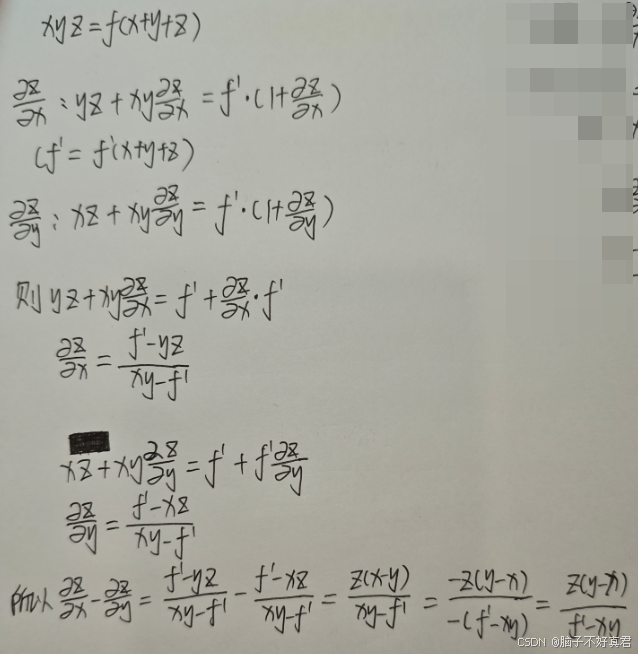 xyz=f(x+y+z)
∂z/∂x : yz+xy ∂z/∂x = f'·(1+∂z/∂x)
(f'=f'(x+y+z)
∂z/∂y : xz+xy ∂z/∂y = f'·(1+∂z/∂y)
则 yz+xy ∂z/∂x = f'+∂z/∂x·f'
∂z/∂x = (f'-yz)/(xy-f')
xz+xy ∂z/∂y = f'+f' ∂z/∂y
∂z/∂y = (f'-xz)/(xy-f')
所以 ∂z/∂x-∂z/∂y = (f'-yz)/(xy-f') - (f'-xz)/(xy-f') = z(x-y)/(xy-f') = -z(y-x)/-(f'-xy) = z(y-x)/(f'-xy)
CSDN @脑子不好真君